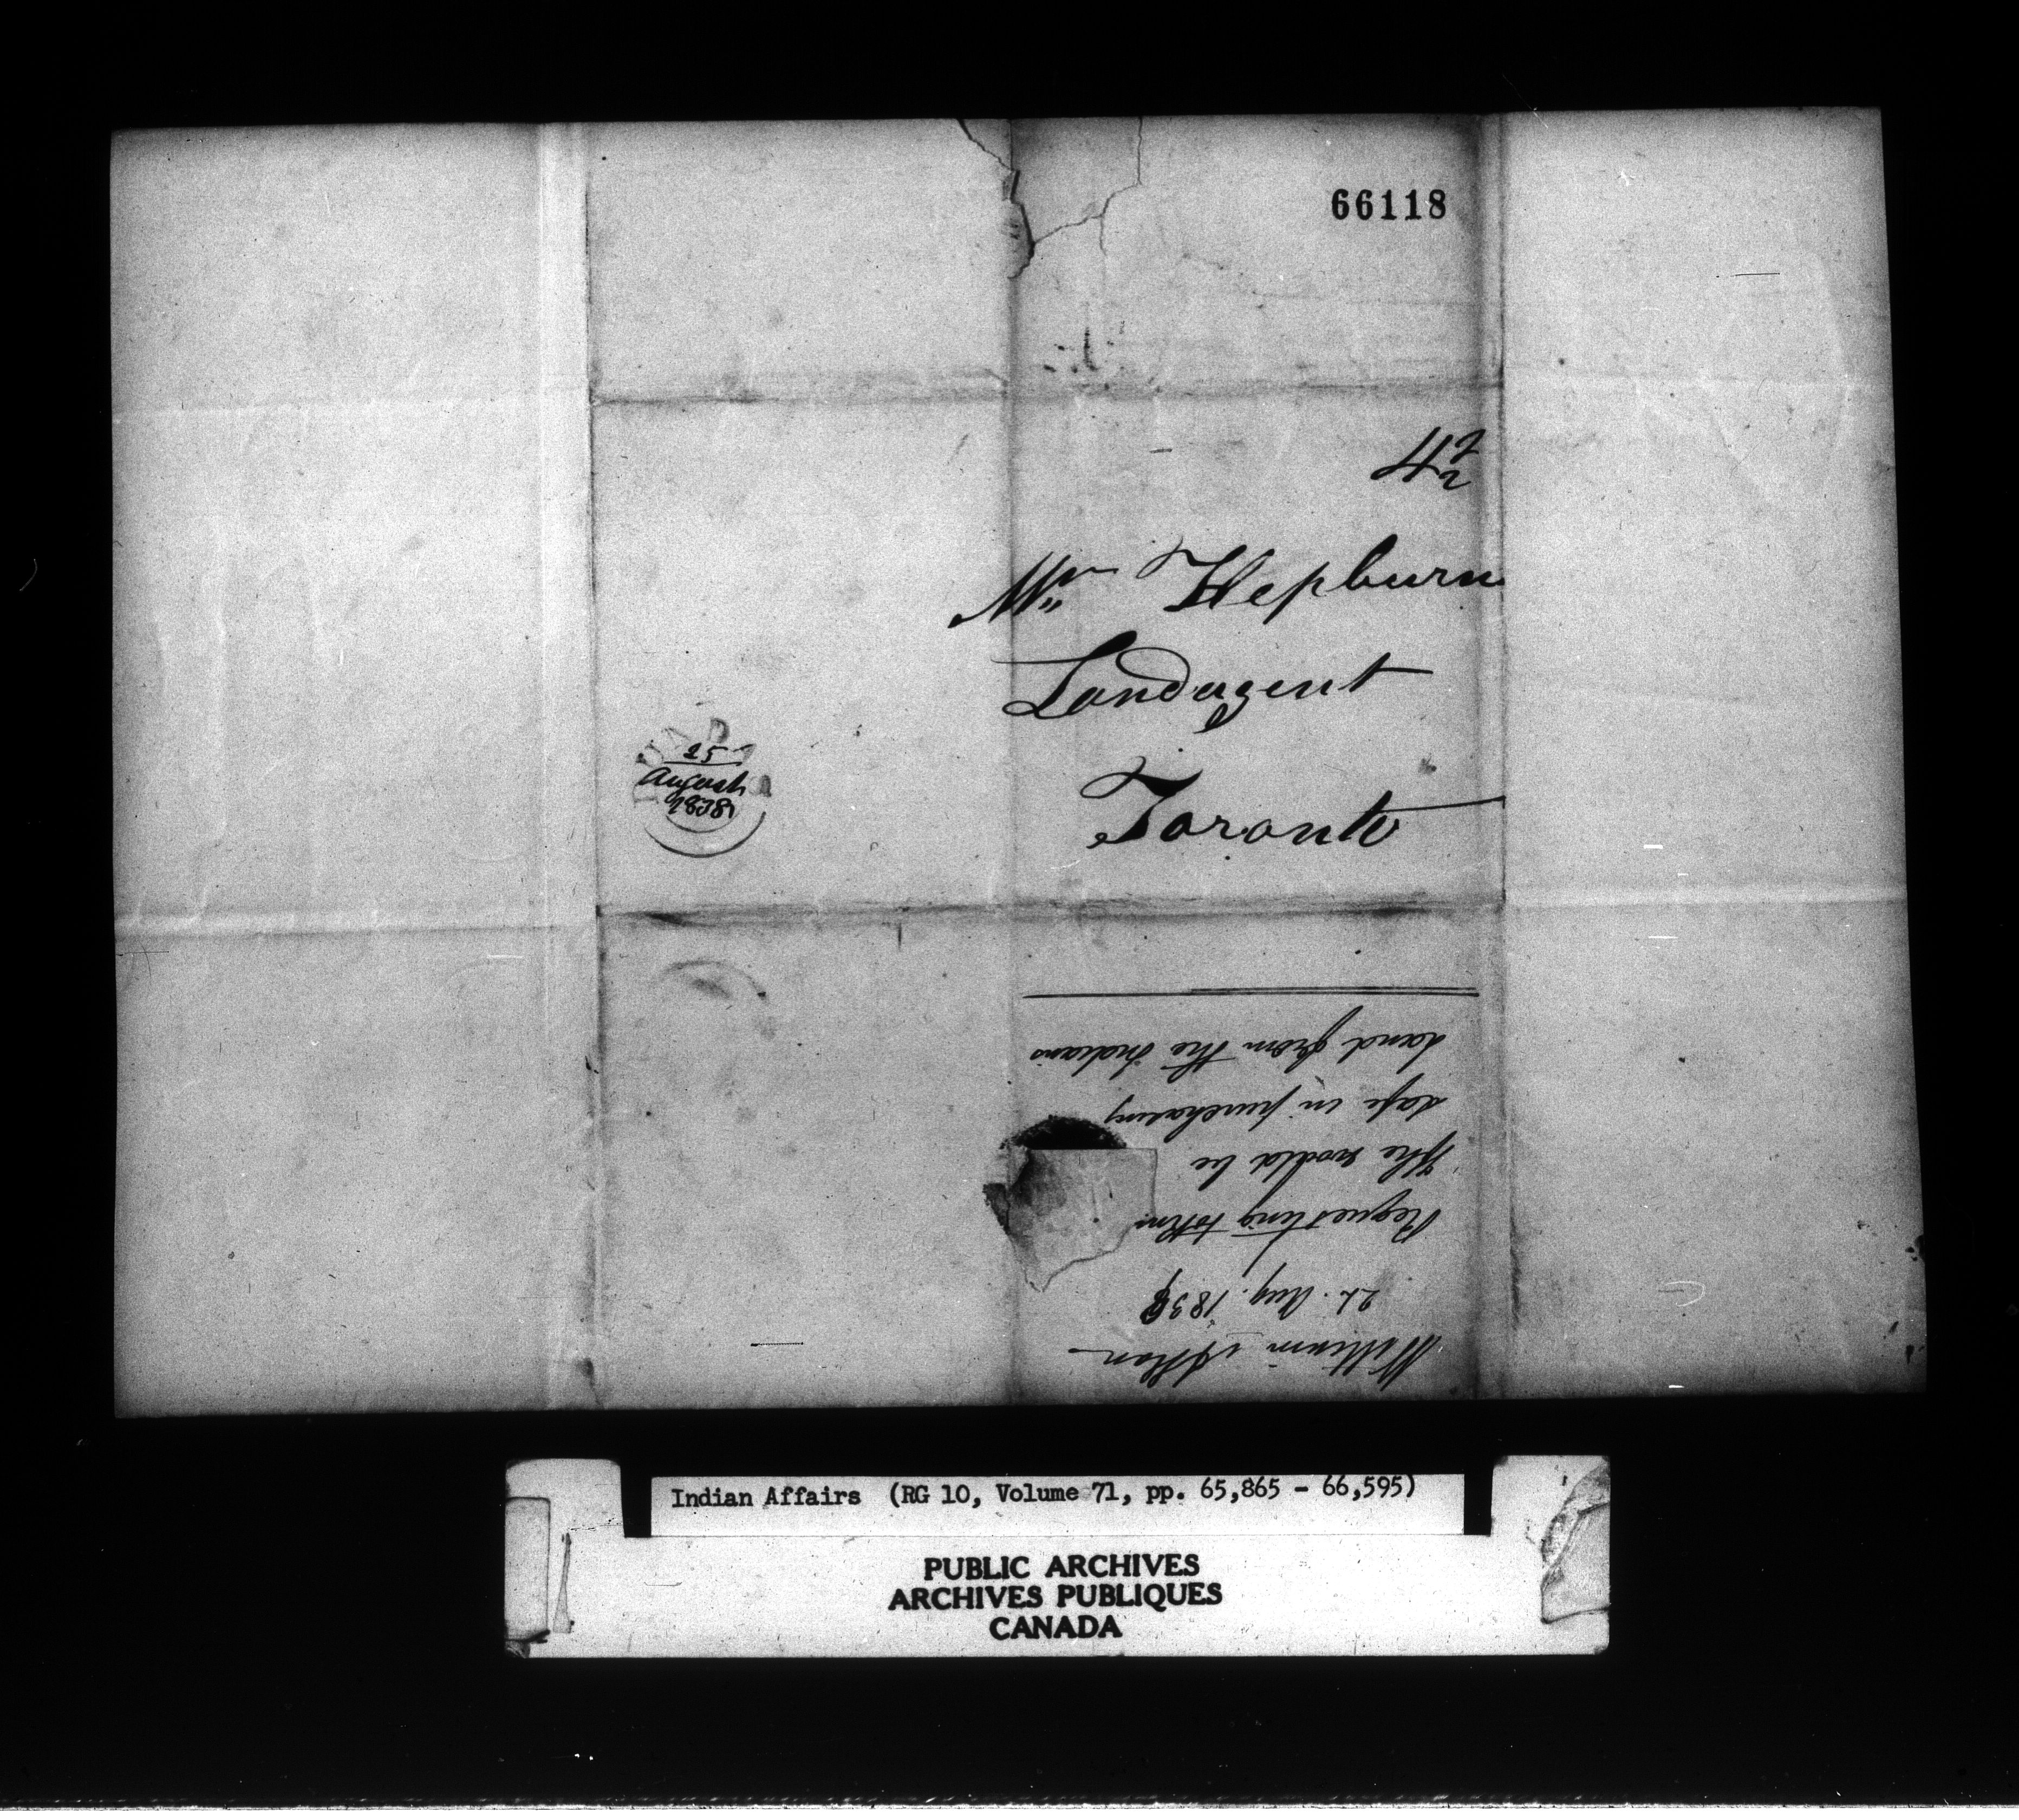 66118
4½
Mr Hepburn
Landagent
Toronto
DUNDAS
25
August
1838
William
22. Aug. 1838
Requesting to know
if he would be
safe in purchasing
Land from the Indians
Indian Affairs (RG 10, Volume 71, pp. 65,865 - 66,595)
PUBLIC ARCHIVES
ARCHIVES PUBLIQUES
CANADA